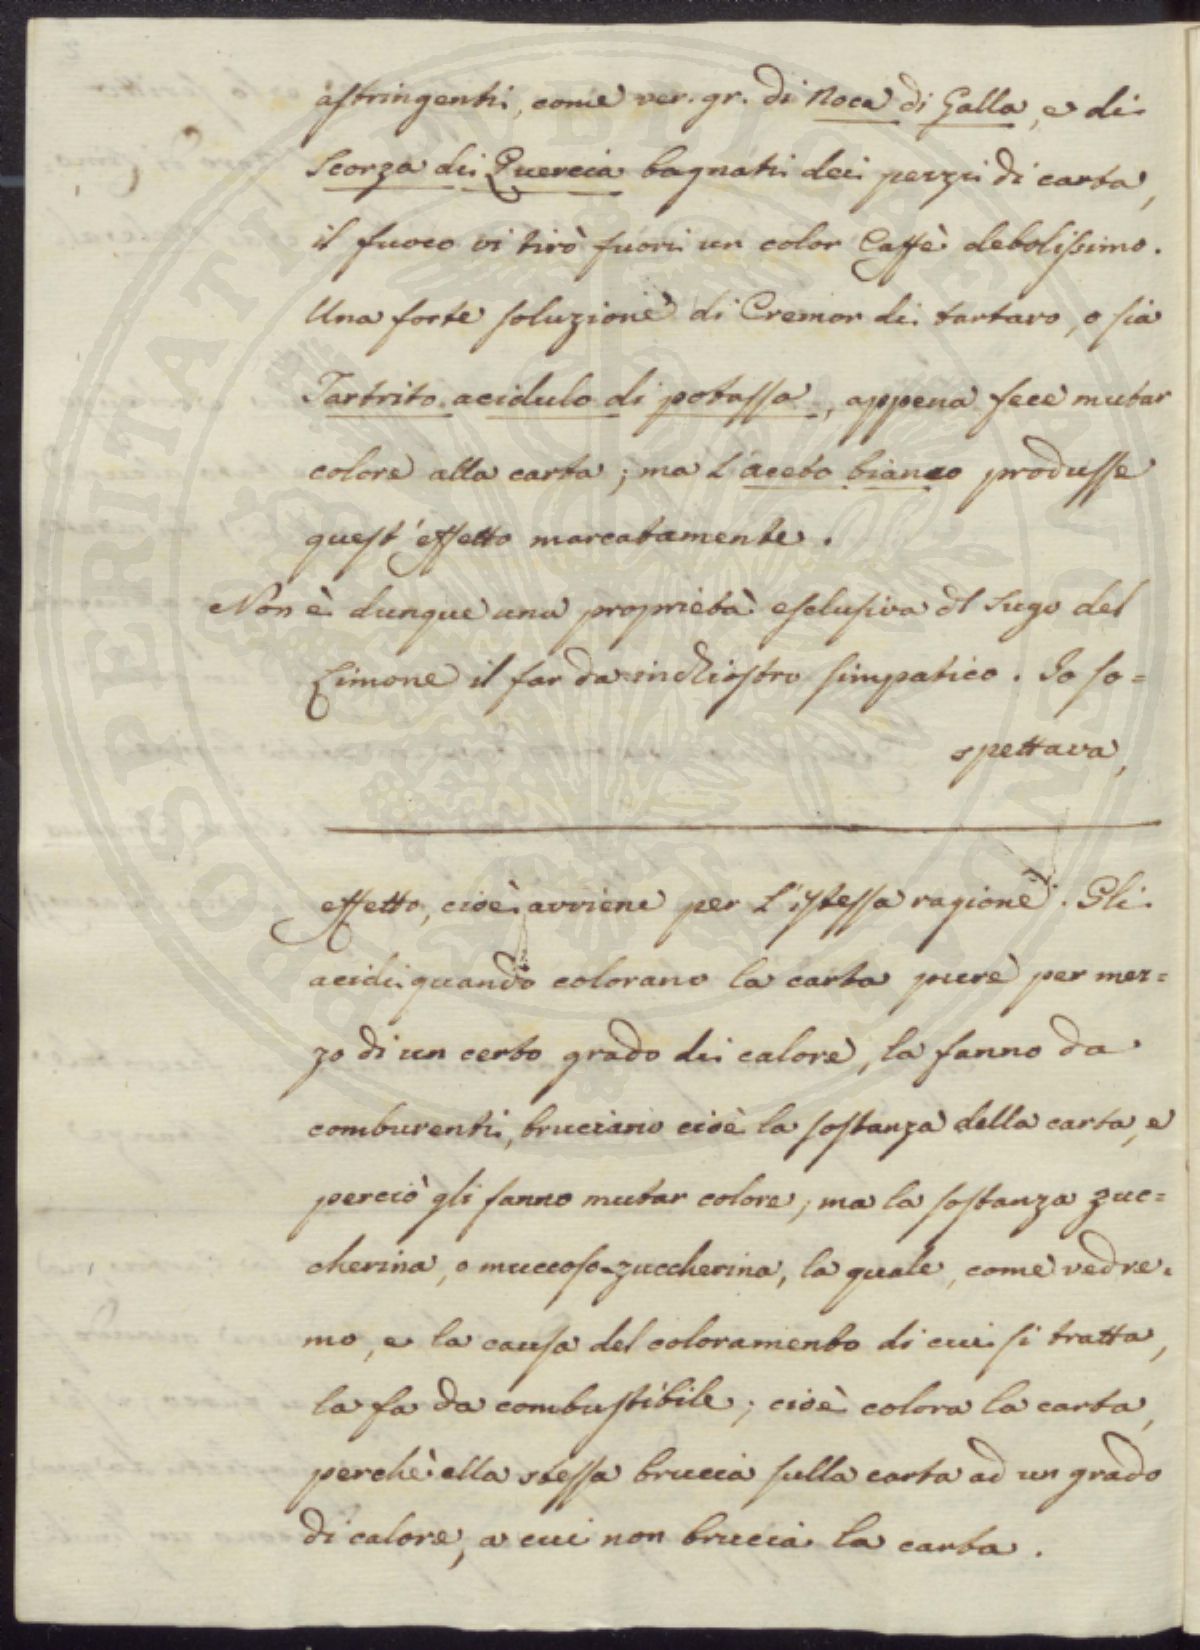 astringenti, come ver. gr. di Noce di Galla, e di
Scorza di Quercia bagnati dei pezzi di carta,
il fuoco vi tirò fuori un color Caffè debolissimo.
Una forte soluzione di Cremor di tartaro, o sia
Tartrito acidulo di potassa, appena fece mutar
colore alla carta; ma l'aceto bianco produsse
quest'effetto marcatamente.
Non è dunque una proprietà esclusiva dl sugo del
Limone il far da inchiostro simpatico. Io so=
spettava,
effetto, cioè avviene per l'istessa ragione. Gli
acidi quando colorano la carta pure per mez=
zo di un certo grado di calore, la fanno da
comburenti, bruciano cioè la sostanza della carta, e
perciò gli fanno mutar colore; ma la sostanza zuc=
cherina, o muccoso-zuccherina, la quale, come vedre=
mo, e la causa del coloramento di cui si tratta,
la fa da combustibile; cioè colora la carta,
perchè ella stessa bruccia sulla carta ad un grado
di calore, a cui non bruccia la carta.
PROSPERITATI PUBLICAE AUGENDAE